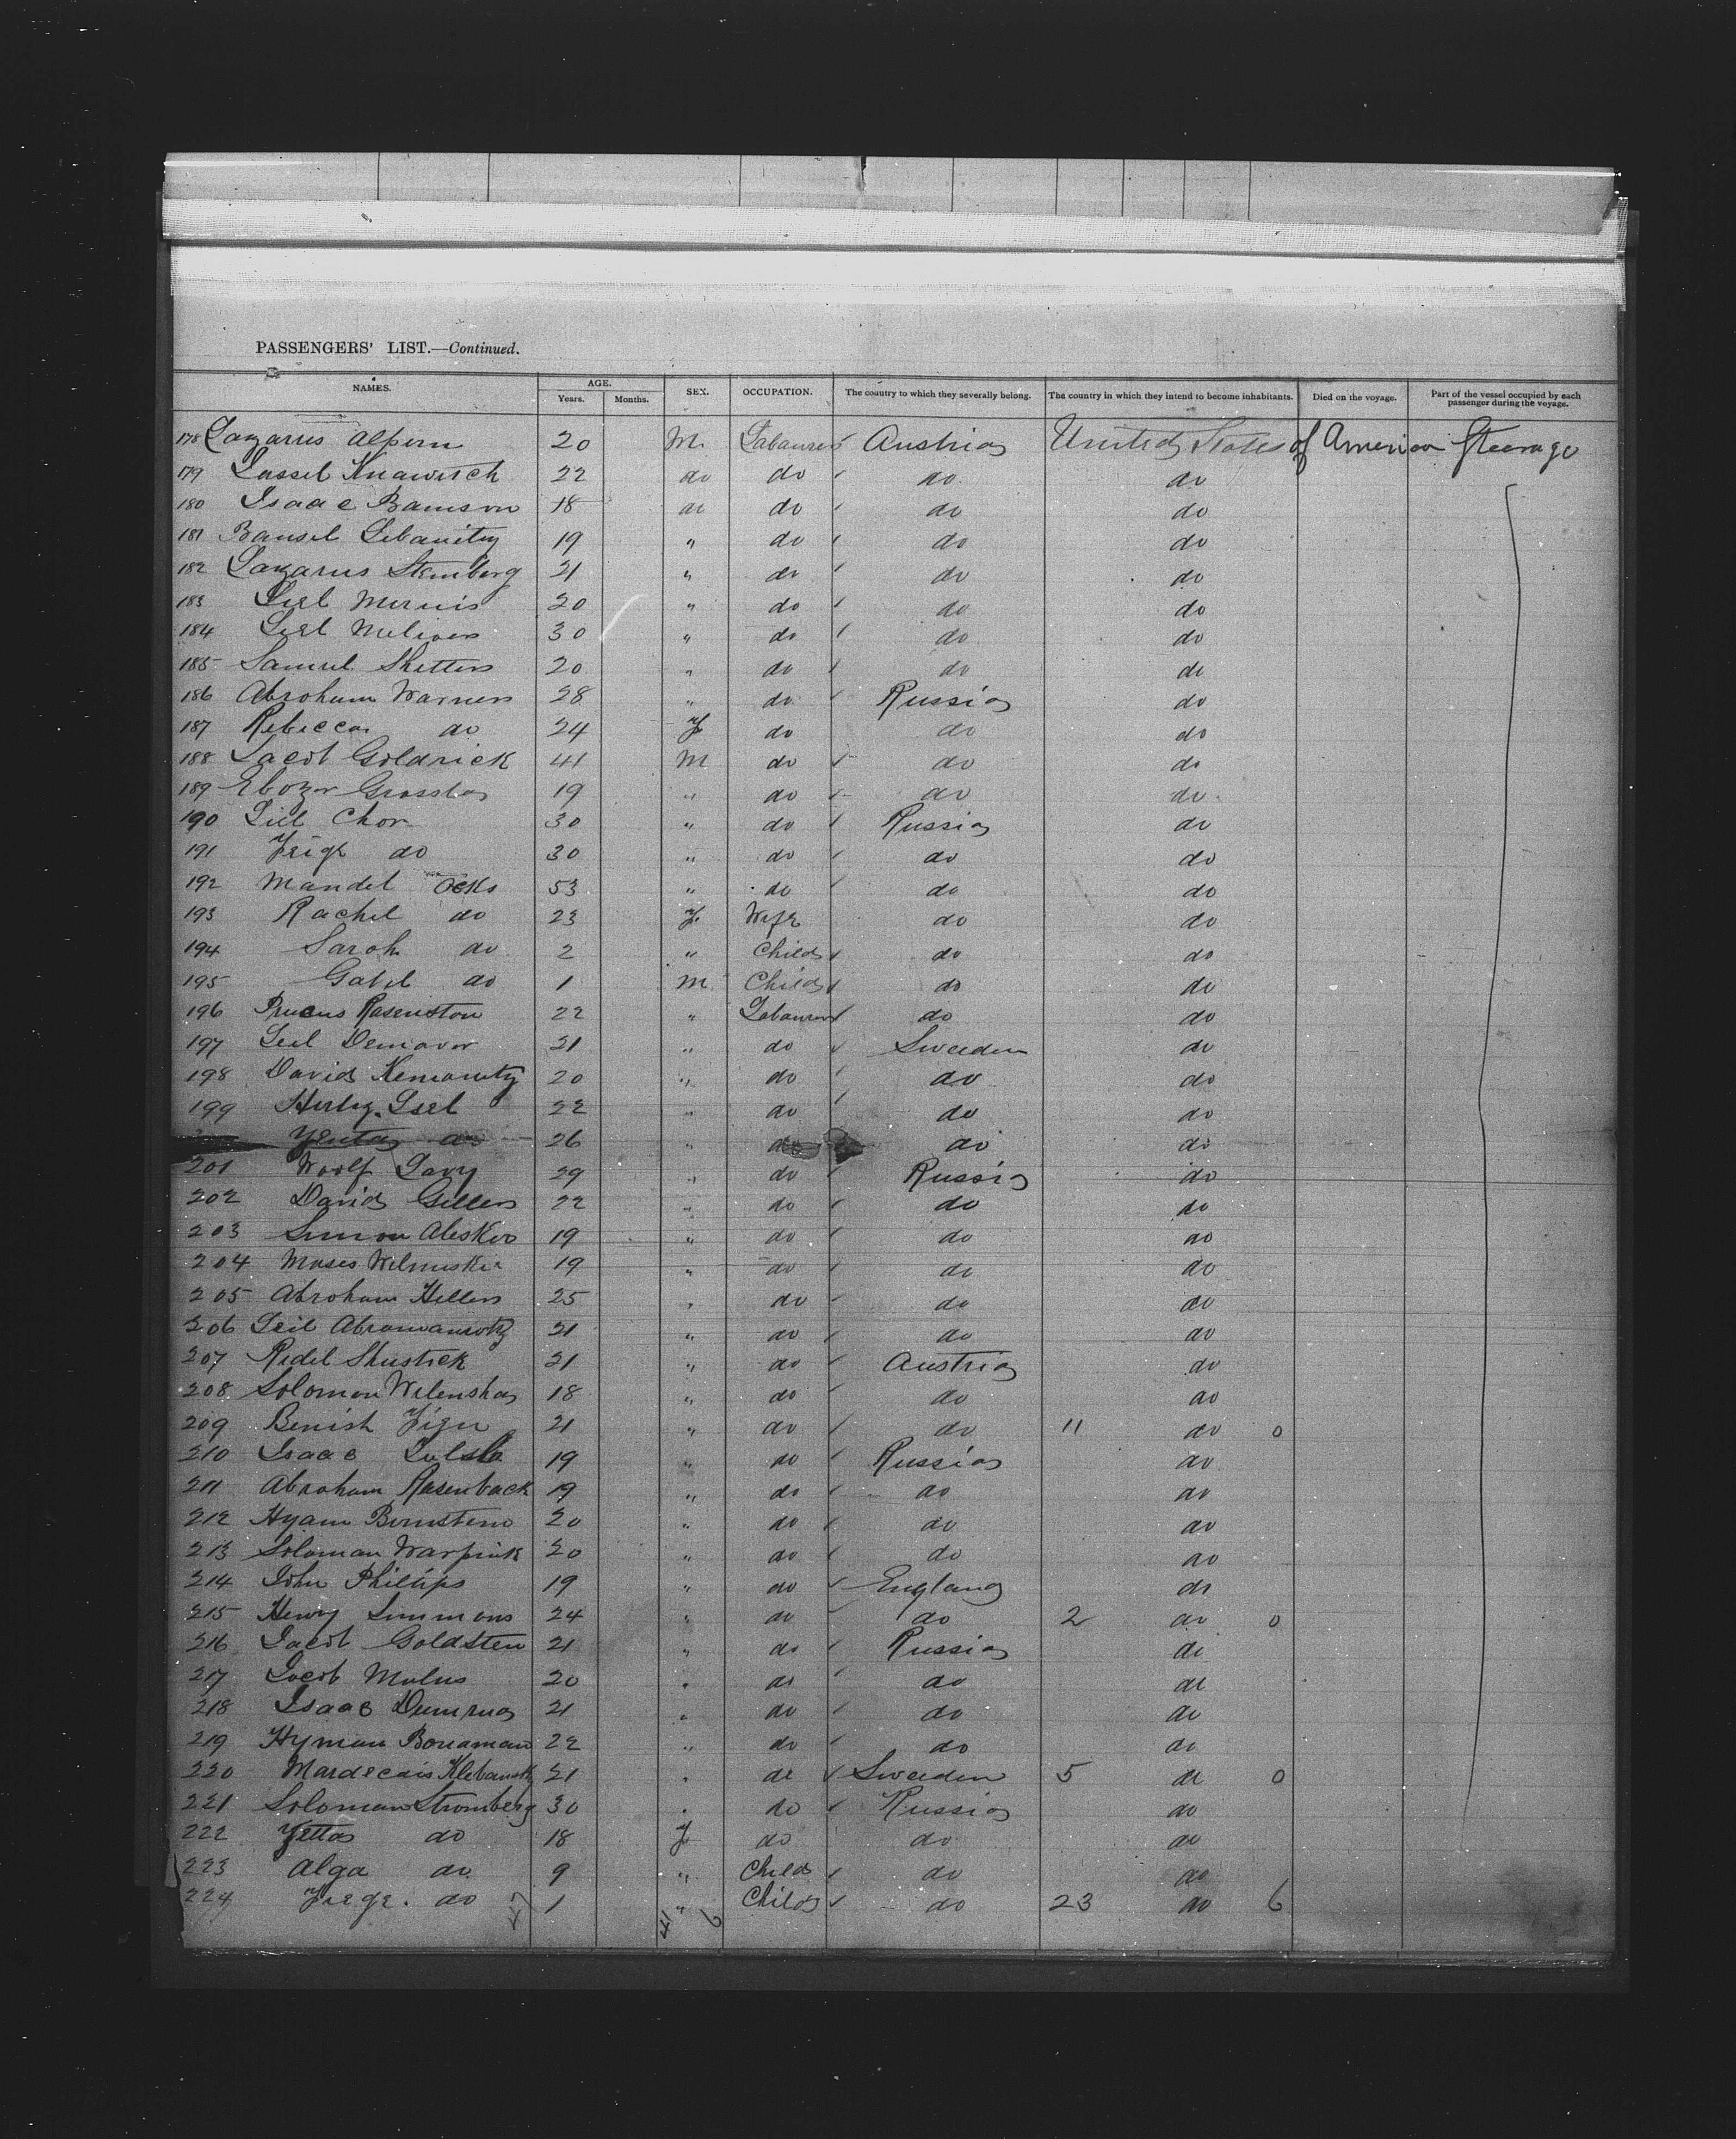 PASSENGERS' LIST.—Continued.
NAMES. AGE. Years. Months. SEX. OCCUPATION. The country to which they severally belong. The country in which they intend to become inhabitants. Died on the voyage. Part of the vessel occupied by each passenger during the voyage.
178 Lazarus Alpern 20 M Labourer Austria United States of America Steerage
179 Lassel Knawisch 22 do do do do
180 Isaac Bamson 18 do do do do
181 Bansel Lebanitzy 19 " do do do
182 Lazarus Stemberg 21 " do do do
183 Lirl Mernis 20 " do do do
184 Lirl 30 " do do do
185 Samuel Shetters 20 " do do do
186 Abraham Warners 28 " do Russia do
187 Rebecca do 24 F do do do
188 Jacob Goldrick 41 M do do do
189 19 " do do do
190 Chor 30 " do Russia do
191 Feige do 30 " do do do
192 Mandel Ocks 53 " do do do
193 Rachel do 23 F Wife do do
194 Sarah do 2 " Child do do
195 Gabel do 1 M Child do do
196 Rasenston 22 " Labourer do do
197 Leil Demavor 21 " do Sweeden do
198 David 20 " do do do
199 22 " do do do
Yentas do 26 " do do do
201 Woolf Lavy 29 " do Russia do
202 David Gillers 22 " do do do
203 Simon Aleskeo 19 " do do do
204 Moses Wilmuskie 19 " do do do
205 Abraham Hellers 25 " do do do
206 Leil 21 " do do do
207 Redel Shustrek 21 " do Austria do
208 Soloman Wilenskas 18 " do do do
209 Benish 21 " do do 11 do 0
210 Isaac 19 " do Russia do
211 Abraham Rasenback 19 " do do do
212 Hyam Bernstein 20 " do do do
213 Soloman Warpink 20 " do do do
214 John Phillips 19 " do England do
215 Henry Simmons 24 " do do 2 do 0
216 Jacob Goldsten 21 " do Russia do
217 Jacob Malus 20 " do do do
218 Isaac 21 " do do do
219 Hyman Bonaman 22 " do do do
220 Mardecais Klebansky 21 " do Sweeden 5 do 0
221 Soloman Stromberg 30 " do Russia do
222 Yettas do 18 F do do do
223 Alga do 9 " Child do do
224 Feige do 1 " Child do 23 do 6
47 41 6